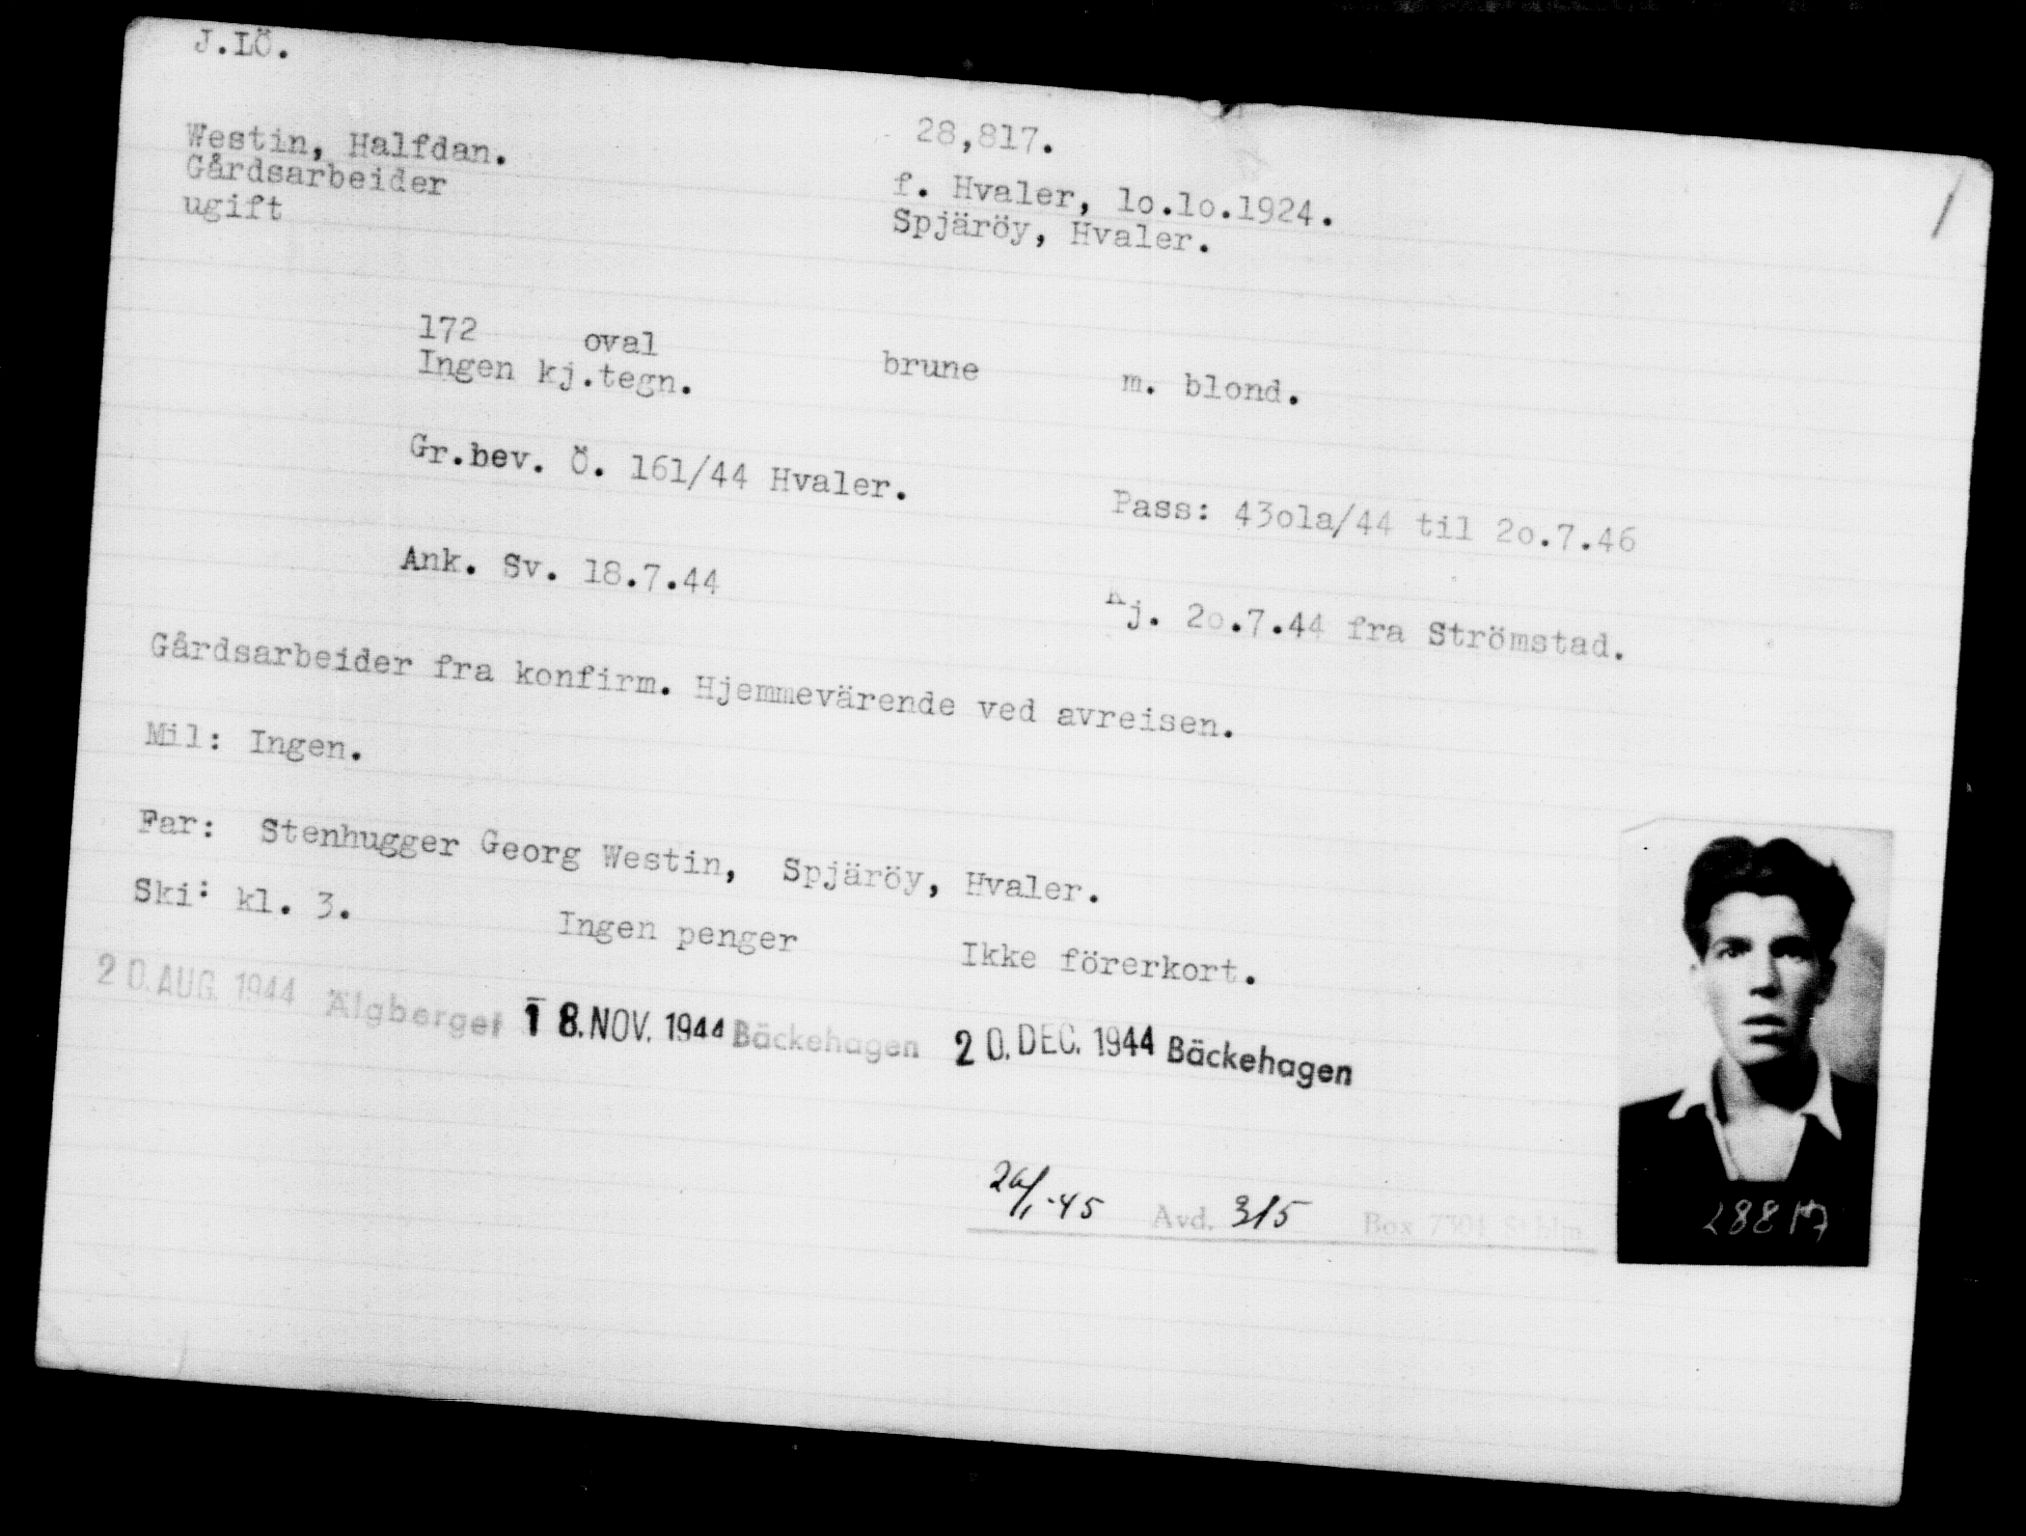 J.LÖ.
Westin, Halfdan. 28,817.
Gårdsarbeider f. Hvaler, lo.lo.1924.
ugift Spjäröy, Hvaler.
172 oval brune m. blond.
Ingen kj.tegn.
Gr.bev. Ö. 161/44 Hvaler. Pass: 43ola/44 til 2o.7.46
Ank. Sv. 18.7.44 Kj. 2o.7.44 fra Strömstad.
Gårdsarbeider fra konfirm. Hjemmevärende ved avreisen.
Mil: Ingen.
Far: Stenhugger Georg Westin, Spjäröy, Hvaler.
Ski: kl. 3. Ingen penger Ikke förerkort.
20. AUG. 1944 Älgberget 18. NOV. 1944 Bäckehagen 20. DEC. 1944 Bäckehagen
Avd. 315 Box
28817